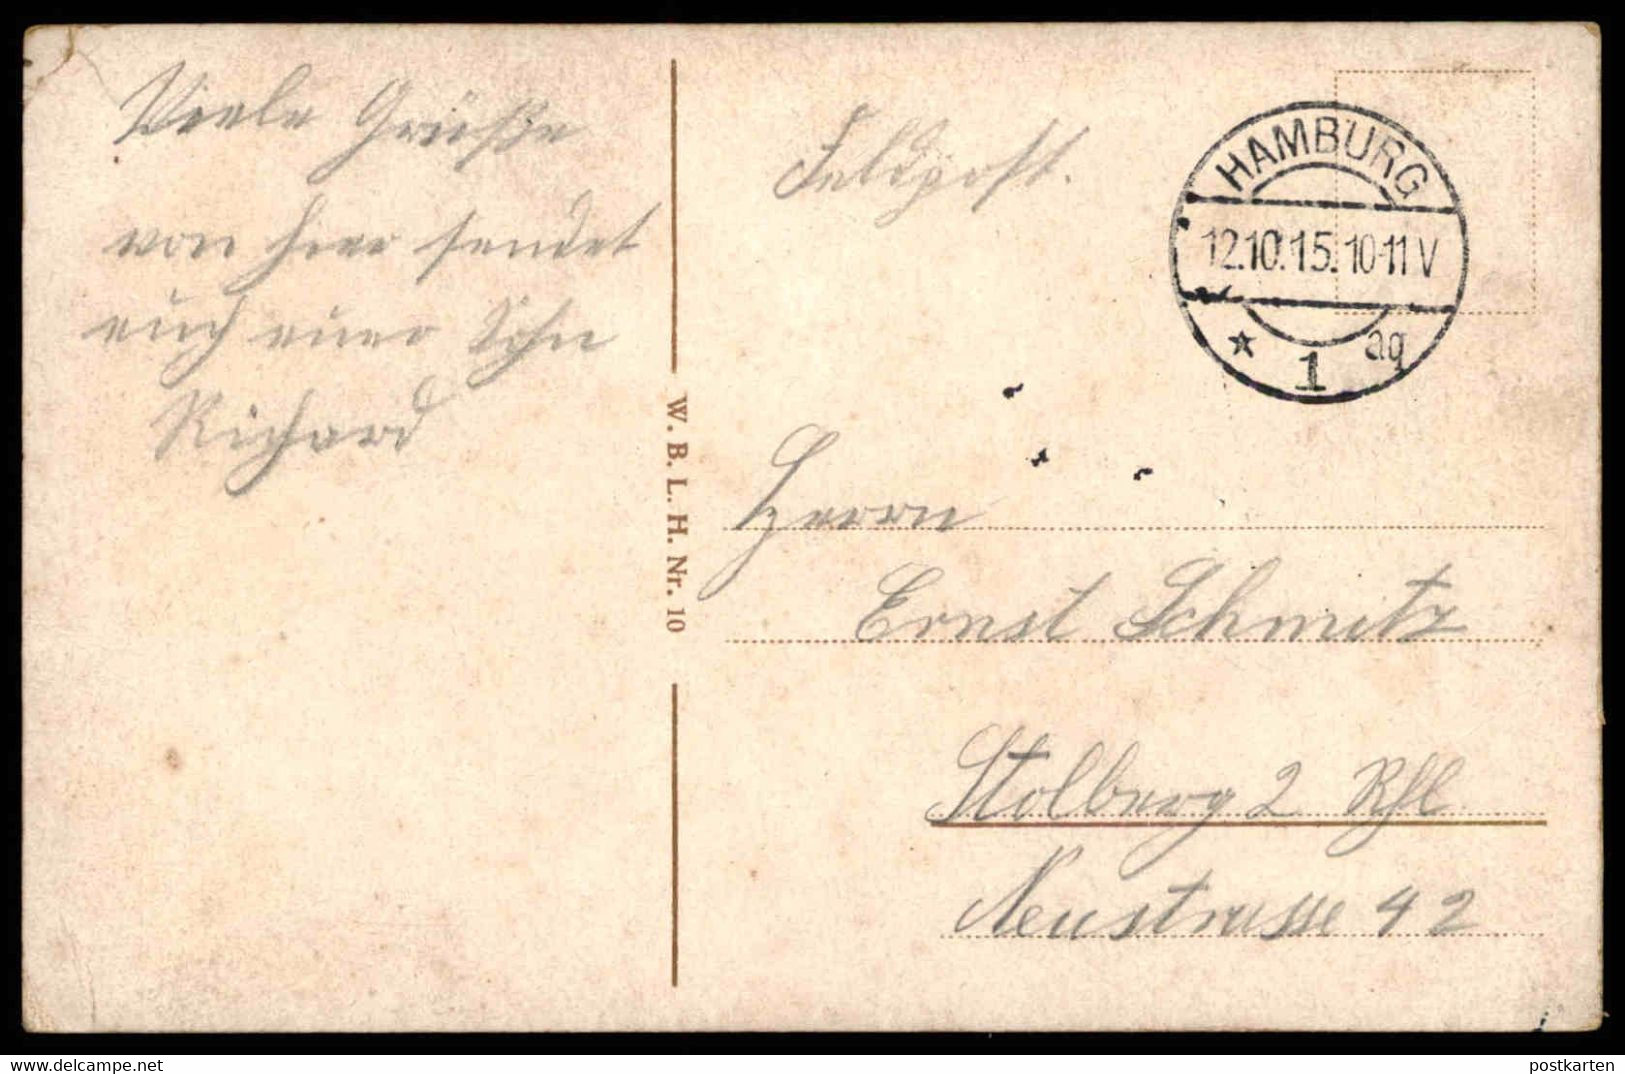 Viele Grüße
von hier sendet
euch euer Sohn
Richard
W. B. L. H. Nr. 10
Feldpost.
HAMBURG
12.10.15. 10-11 V
* 1 aq
Herrn
Ernst Schmitz
Stolberg 2 Rhl
Neustrasse 42
postkarten